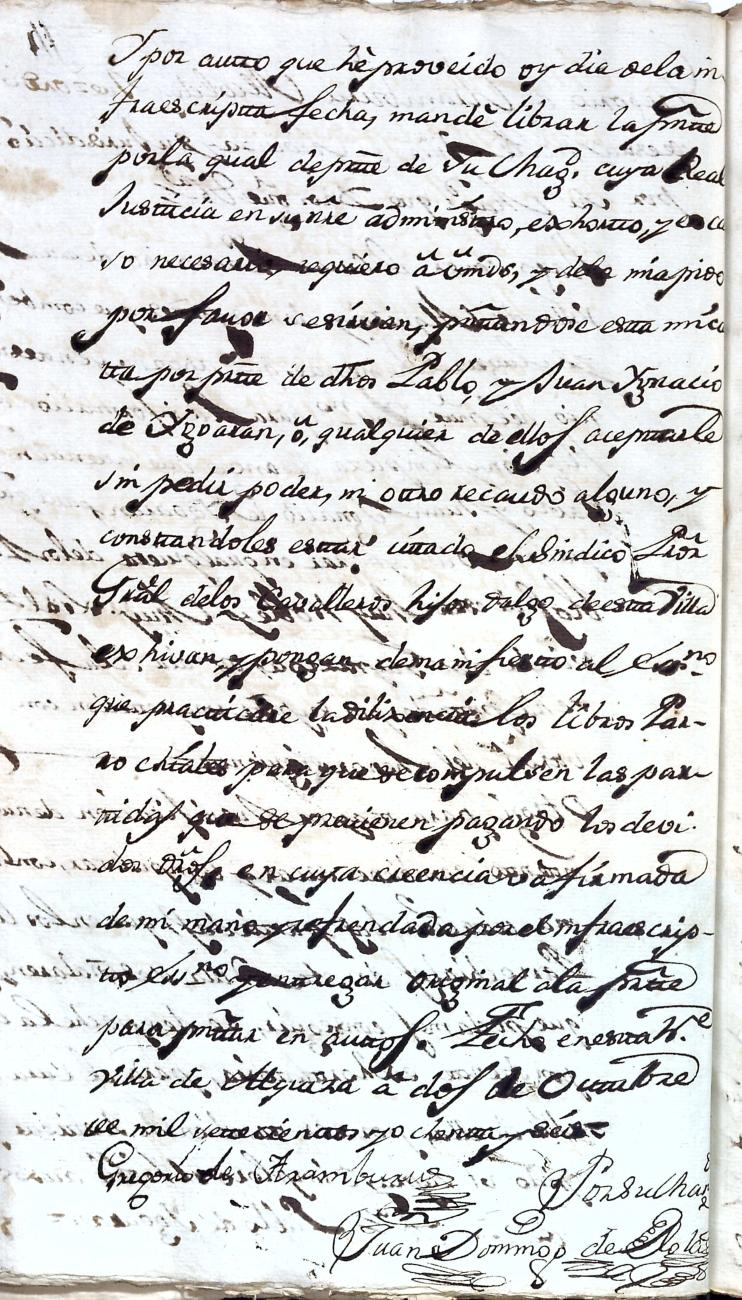 Y por autto que hè proveido oy dia de la in-
fraescriptta fecha, mandè librar la prñtte
por la qual de prñte de Su Mag.d cuya Real
Justicia en su nre administro, exhortto, y en ca
so necesario requiero â vmds, y de la mia pido
por favor se sirvan, prñttandose esta mi ca
tta por prtte de dhos Pablo, y Juan Ygnacio
de Ygoaran, ô, qualquier de ellos aceptarle
sin pedir poder, ni ottro recaudo alguno, y
constandoles estar cittado el Sindico Pror
Gral de los Cavalleros hijos dalgo de esta Villa
exhivan, y pongan de manifiestto al Esno
que practticare la dilixencia los libros Par-
rochiales para que se compulsen las par-
ttidas que se previenen pagando los devi-
dos drôs, en cuya creencia va firmada
de mi mano y refrendada por el infraescrip-
tto Esno y enttregar original a la prtte
para prñttar en auttos. Fecho en esta N.e
Villa de Vergara â dos de Octtubre
de mil settecientos y ochentta y seis=
Gregorio de Aramburu
Por su
Juan Domingo de